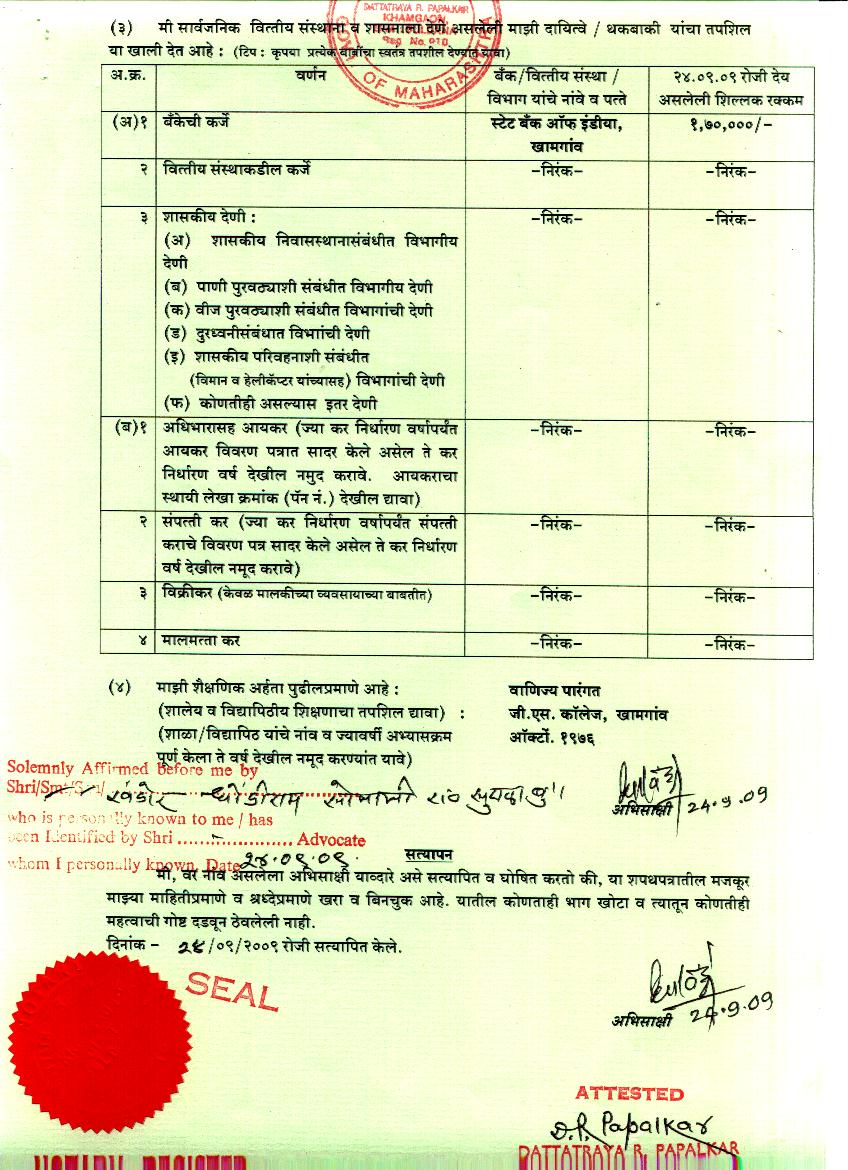 DATTATRAYA R. PAPALKAR
KHAMGAON
Reg. No. 910
OF MAHARASHTRA
(३) मी सार्वजनिक वित्तीय संस्थांना व शासनाला देणे असलेली माझी दायित्वे / थकबाकी यांचा तपशिल
या खाली देत आहे : (टिप : कृपया प्रत्येक बाबींचा स्वतंत्र तपशील देण्यात यावा)
अ.क्र. वर्णन बँक/वित्तीय संस्था / २४.०९.०९ रोजी देय
विभाग यांचे नांवे व पत्ते असलेली शिल्लक रक्कम
(अ)१ बँकेची कर्जे स्टेट बँक ऑफ इंडीया, १,७०,०००/-
खामगांव
२ वित्तीय संस्थाकडील कर्जे -निरंक- -निरंक-
३ शासकीय देणी : -निरंक- -निरंक-
(अ) शासकीय निवासस्थानासंबंधीत विभागीय
देणी
(ब) पाणी पुरवठ्याशी संबंधीत विभागीय देणी
(क) वीज पुरवठ्याशी संबंधीत विभागांची देणी
(ड) दुरध्वनीसंबंधात विभाांची देणी
(इ) शासकीय परिवहनाशी संबंधीत
(विमान व हेलीकॅप्टर यांच्यासह) विभागांची देणी
(फ) कोणतीही असल्यास इतर देणी
(ब)१ अधिभारासह आयकर (ज्या कर निर्धारण वर्षापर्यंत -निरंक- -निरंक-
आयकर विवरण पत्रात सादर केले असेल ते कर
निर्धारण वर्ष देखील नमुद करावे. आयकराचा
स्थायी लेखा क्रमांक (पॅन नं.) देखील द्यावा)
२ संपत्ती कर (ज्या कर निर्धारण वर्षापर्यंत संपत्ती -निरंक- -निरंक-
कराचे विवरण पत्र सादर केले असेल ते कर निर्धारण
वर्ष देखील नमूद करावे)
३ विक्रीकर (केवळ मालकीच्या व्यवसायाच्या बाबतीत) -निरंक- -निरंक-
४ मालमत्ता कर -निरंक- -निरंक-
(४) माझी शैक्षणिक अर्हता पुढीलप्रमाणे आहे : वाणिज्य पारंगत
(शालेय व विद्यापिठीय शिक्षणाचा तपशिल द्यावा) : जी.एस. कॉलेज, खामगांव
(शाळा/विद्यापिठ यांचे नांव व ज्यावर्षी अभ्यासक्रम ऑक्टों. १९७६
पूर्ण केला ते वर्ष देखील नमुद करण्यांत यावे)
Solemnly Affirmed before me by
Shri/Smt/Sm/ खंडोर धोंडीराम
अभिसाक्षी 24.9.09
who is personally known to me / has
been Identified by Shri ..................... Advocate
whom I personally known, Date २४.०९.०९.
सत्यापन
मी, वर नांव असलेला अभिसाक्षी याव्दारे असे सत्यापित व घोषित करतो की, या शपथपत्रातील मजकूर
माझ्या माहितीप्रमाणे व श्रध्देप्रमाणे खरा व बिनचुक आहे. यातील कोणताही भाग खोटा व त्यातून कोणतीही
महत्वाची गोष्ट दडवून ठेवलेली नाही.
दिनांक - २४/०९/२००९ रोजी सत्यापित केले.
SEAL
अभिसाक्षी 24.9.09
ATTESTED
D.R. Papalkar
DATTATRAYA R. PAPALKAR
NOTARY REGISTER